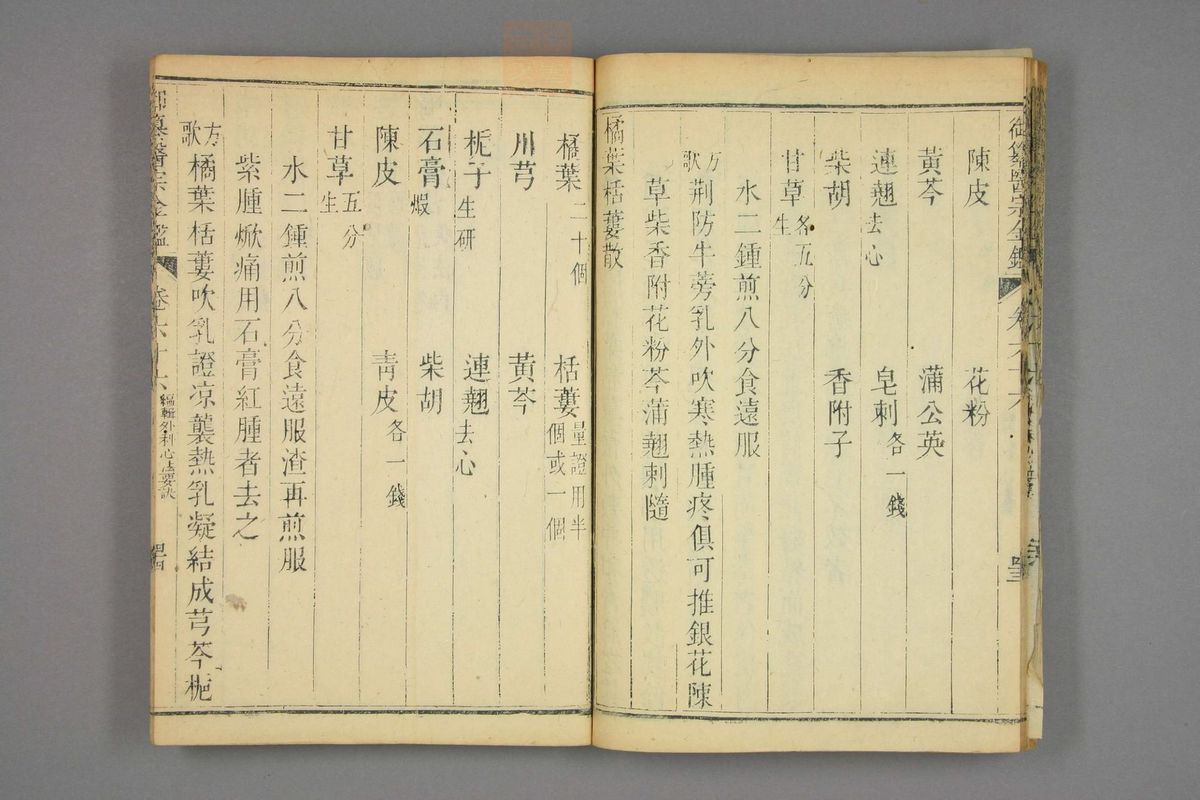 御纂醫宗金鑑 卷六十六 四十三
陳皮 花粉
黃芩 蒲公英
連翹去心 皂刺各一錢
柴胡 香附子
甘草生各五分
水二鍾煎八分食遠服
方歌 荊防牛蒡乳外吹寒熱腫疼俱可推銀花陳
草柴香附花粉芩蒲翹刺隨
橘葉栝蔞散
橘葉二十個 栝蔞量證用半個或一個
川芎 黃芩
梔子生研 連翹去心
石膏煅 柴胡
陳皮 青皮各一錢
甘草生五分
水二鍾煎八分食遠服渣再煎服
紫腫焮痛用石膏紅腫者去之
方歌 橘葉栝蔞吹乳證凉襲熱乳凝結成芎芩梔
御纂醫宗金鑑 卷六十六 編輯外科心法要訣 四十四